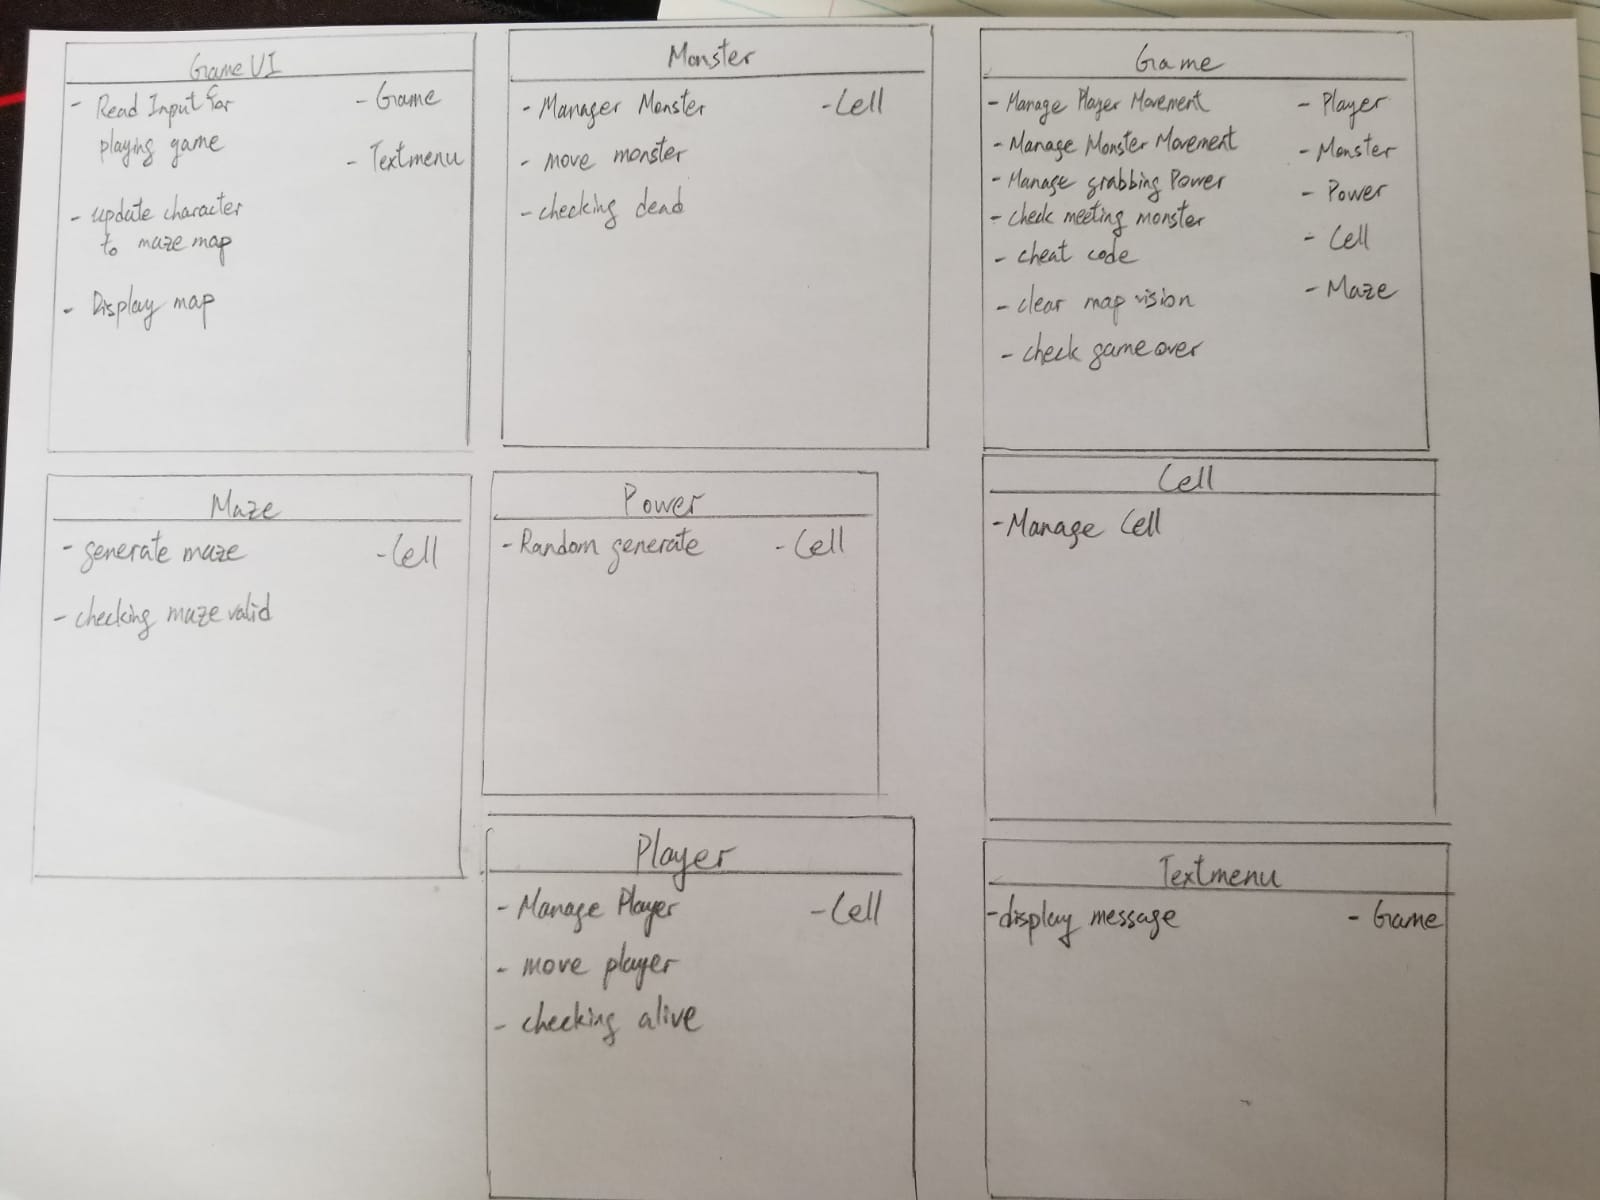 Game UI
- Read Input for
playing game
- update character
to maze map
- Display map
- Game
- Textmenu
Monster
- Manager Monster
- move monster
- checking dead
- Cell
Game
- Manage Player Movement
- Manage Monster Movement
- Manage grabbing Power
- check meeting monster
- cheat code
- clear map vision
- check game over
- Player
- Monster
- Power
- Cell
- Maze
Maze
- generate maze
- checking maze valid
- Cell
Power
- Random generate
- Cell
Cell
- Manage Cell
Player
- Manage Player
- move player
- checking alive
- Cell
Textmenu
- display message
- Game